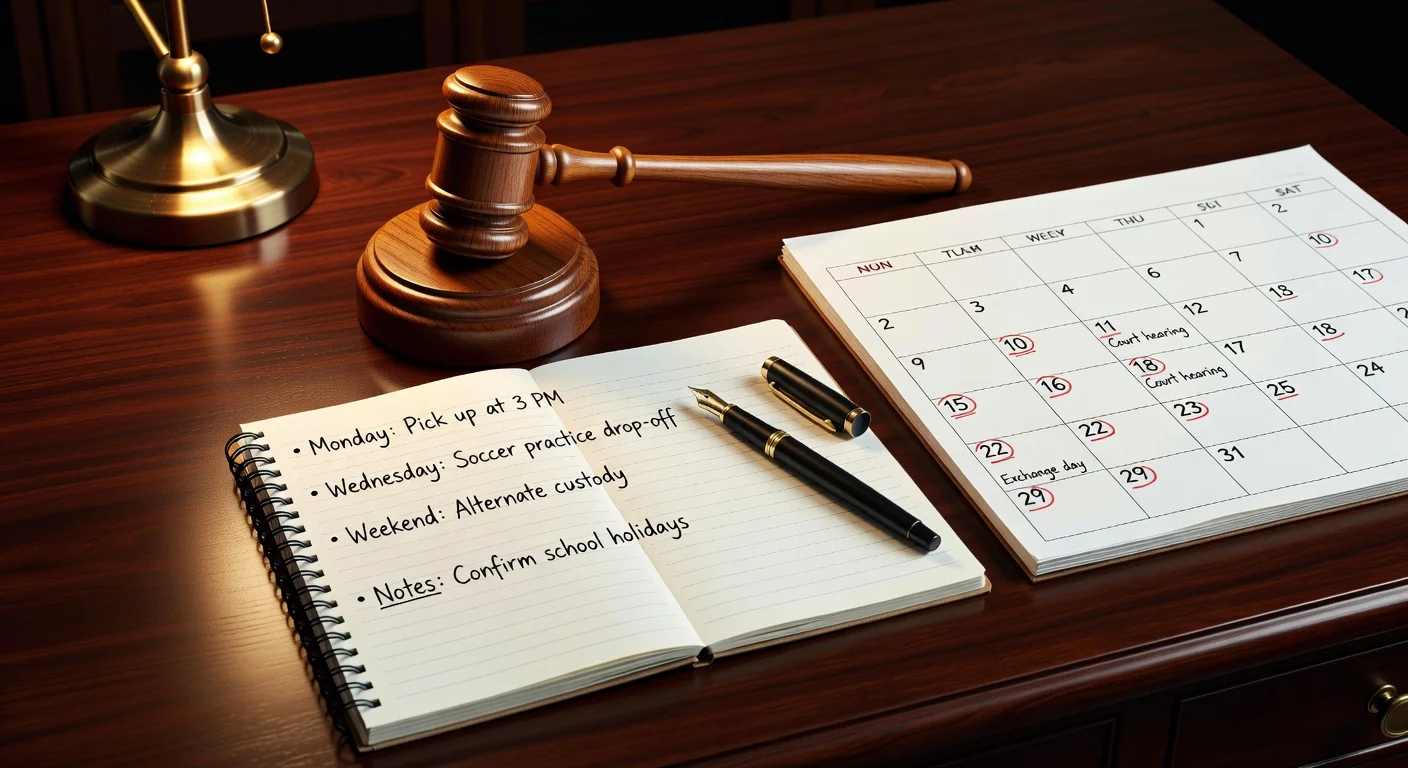 • Monday: Pick up at 3 PM
• Wednesday: Soccer practice drop-off
• Weekend: Alternate custody
• Notes: Confirm school holidays
NUN TLAM WEEY THU SAT
1 2
2 3 4 6 7 10
9 10 11 12 18 17
Court hearing
15 16 18 17 18
Court hearing
22 22 23 25 24
Exchange day
29 29 31